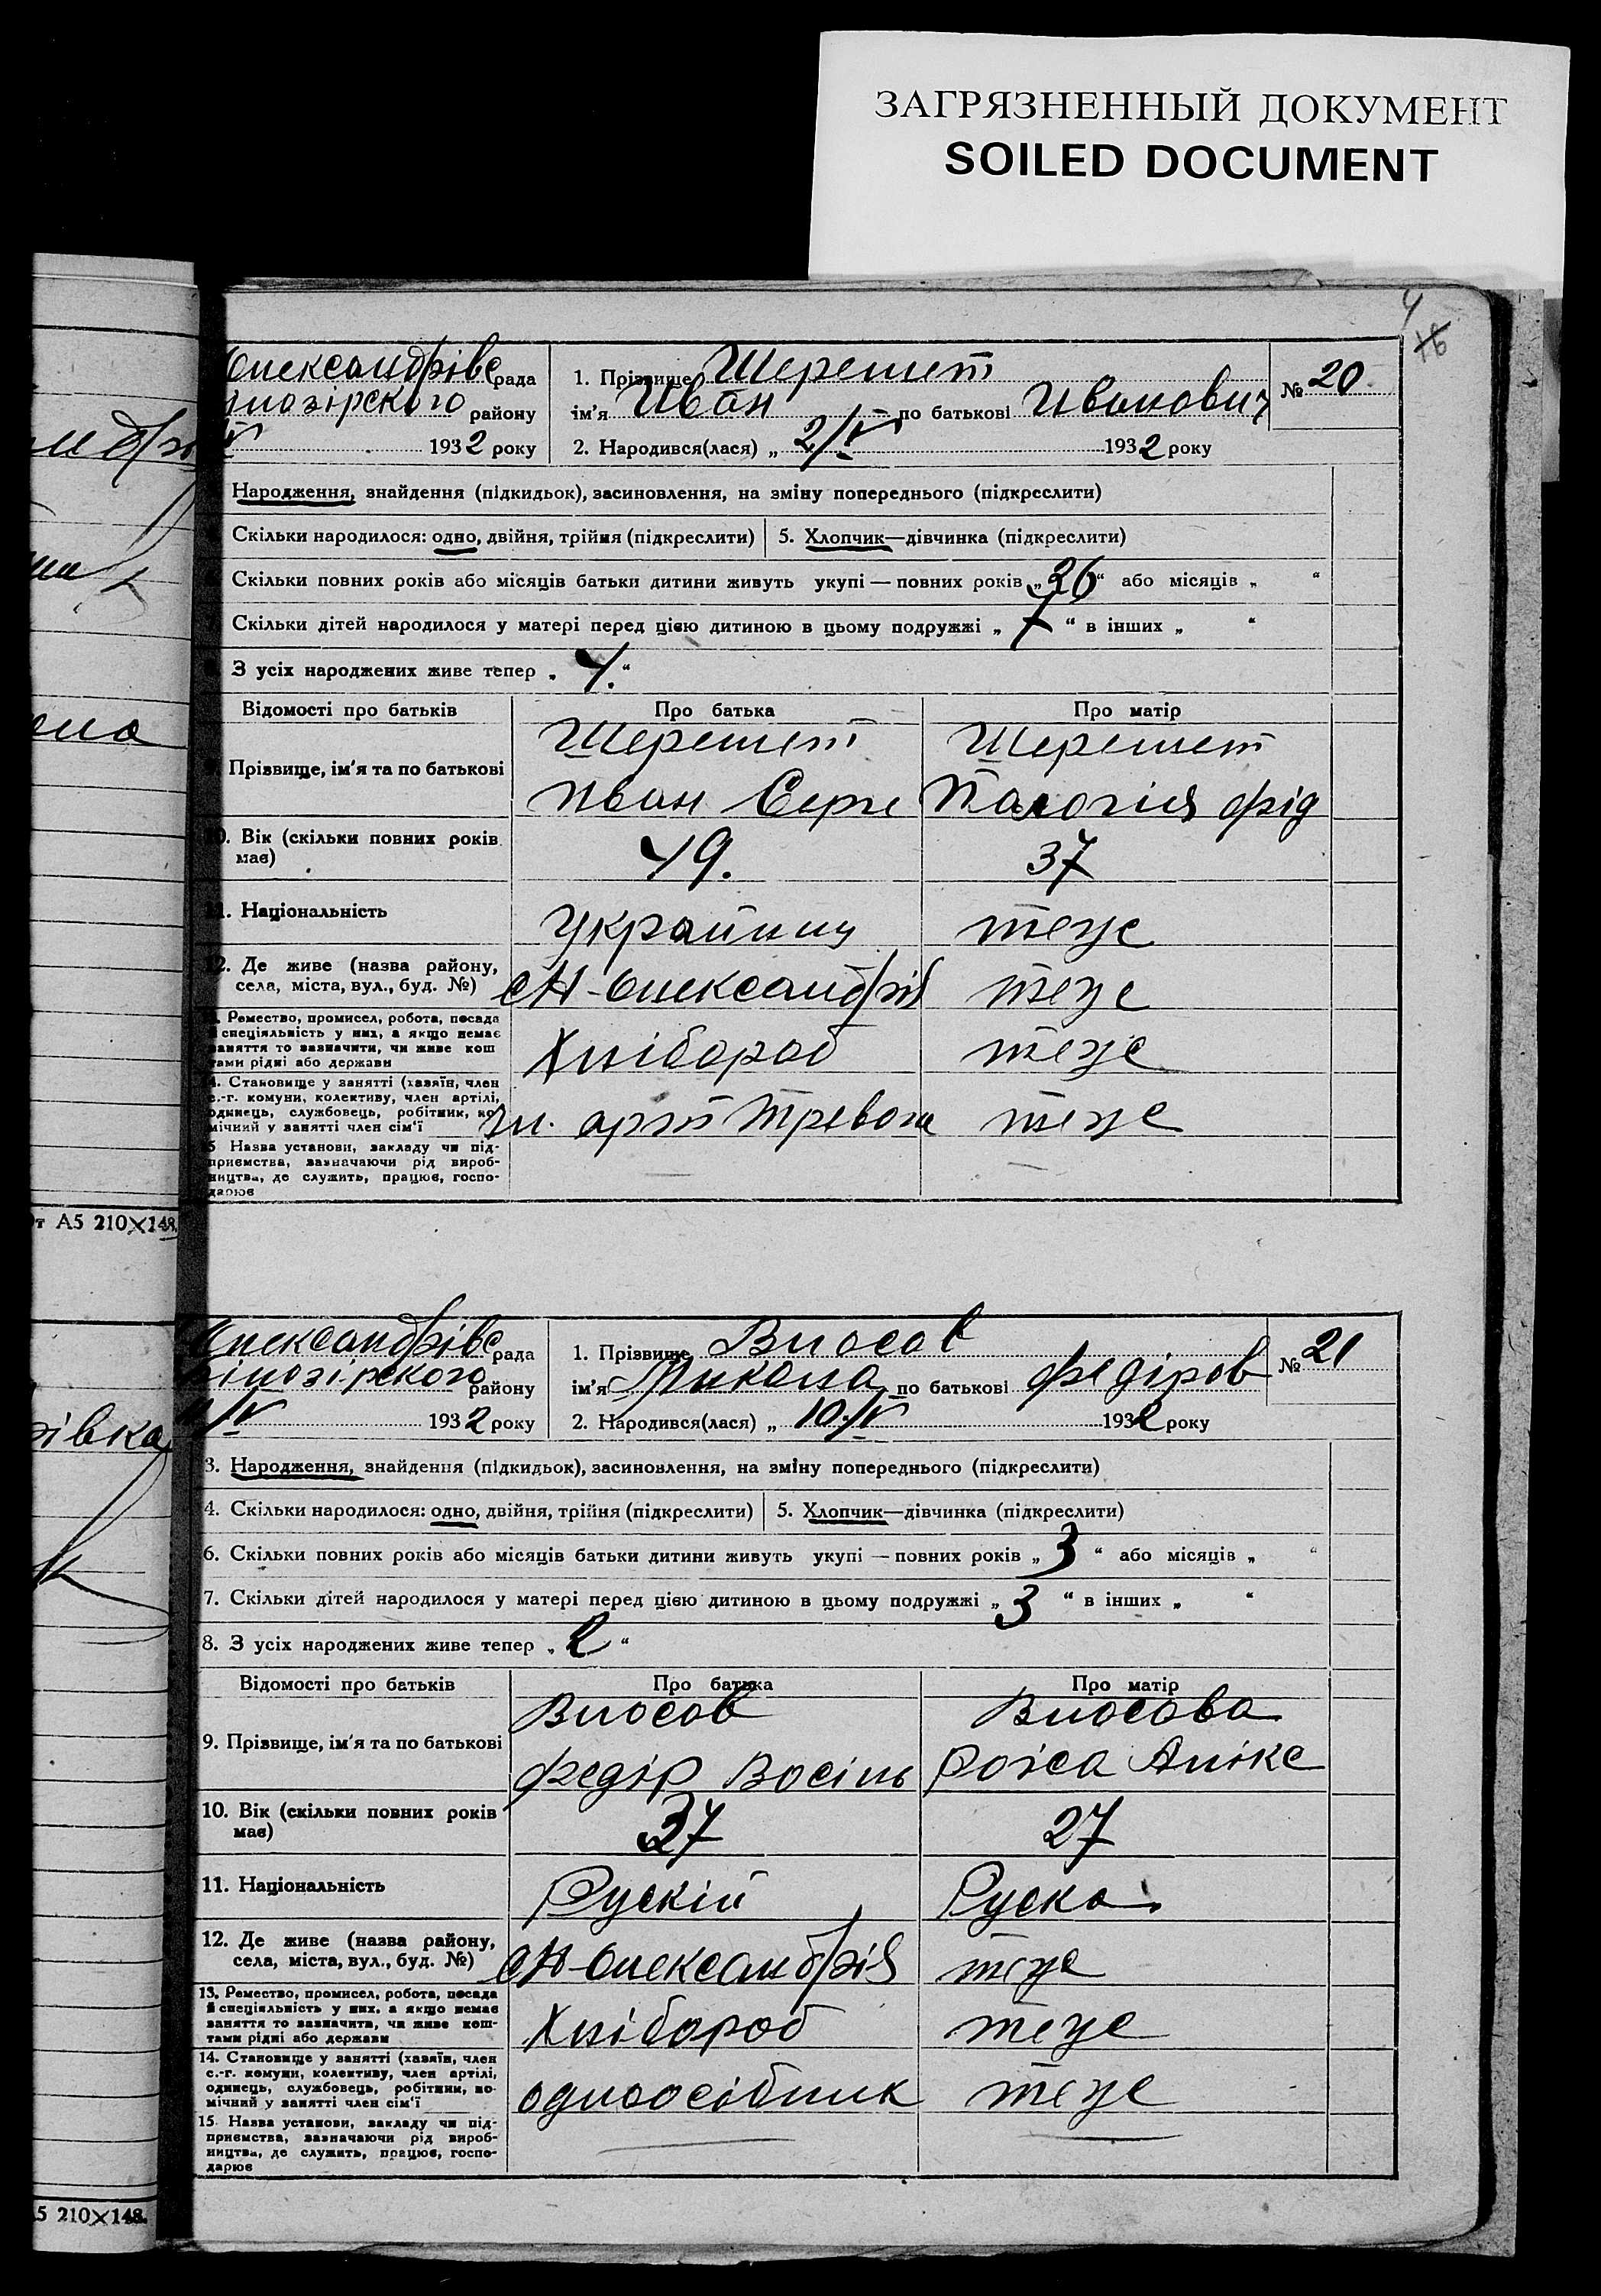 ЗАГРЯЗНЕННЫЙ ДОКУМЕНТ
SOILED DOCUMENT
4
16
Олександрівс рада
района
1. Прізвище Шеремет
№ 20
ім'я Иван по батькові Иванович
1932 року
2. Народився(лася) „ 2/IV 1932 року
Народження, знайдення (підкидьок), засиновлення, на зміну попереднього (підкреслити)
Скільки народилося: одно, двійня, трійня (підкреслити) 5. Хлопчик—дівчинка (підкреслити)
Скільки повних років або місяців батьки дитини живуть укупі — повних років „26“ або місяців „ “
Скільки дітей народилося у матері перед цією дитиною в цьому подружжі „ 7 “ в інших „ “
З усіх народжених живе тепер „ 4. “
Відомості про батьків Про батька Про матір
9. Прізвище, ім'я та по батькові
Шеремет Шеремет
Иван Серг
10. Вік (скільки повних років має) 49. 37
11. Національність Украйинц теж
12. Де живе (назва району, села, міста, вул., буд. №) сН-Олександрів теж
13. Ремество, промисел, робота, посада й спеціяльність у них, а якщо немає заняття то зазначити, чи живе коштами рідні або держави
Хлібороб теж
14. Становище у занятті (хазяїн, член с.-г. комуни, колективу, член артілі, одинець, службовець, робітник, помічний у занятті член сім'ї
чл. арт Тревога теж
15 Назва установи, закладу чи підприємства, зазначаючи рід виробництва, де служить, працює, господарює
т А5 210×148.
Олександрівс рада
білозірского району
1. Прізвище Власов
№ 21
ім'я Микола по батькові Федіров
1932 року
2. Народився(лася) „ 10/IV 1932 року
3. Народження, знайдення (підкидьок), засиновлення, на зміну попереднього (підкреслити)
4. Скільки народилося: одно, двійня, трійня (підкреслити) 5. Хлопчик—дівчинка (підкреслити)
6. Скільки повних років або місяців батьки дитини живуть укупі — повних років „ 3 “ або місяців „ “
7. Скільки дітей народилося у матері перед цією дитиною в цьому подружжі „ 3 “ в інших „ “
8. З усіх народжених живе тепер „ 2 “
Відомості про батьків Про батька Про матір
9. Прізвище, ім'я та по батькові
Власов Власова
Федір Васіль Раіса Анікс
10. Вік (скільки повних років має) 37 27
11. Національність Рускій Руска
12. Де живе (назва району, села, міста, вул., буд. №) сН-Олександрів теж
13. Ремество, промисел, робота, посада й спеціяльність у них, а якщо немає заняття то зазначити, чи живе коштами рідні або держави
Хлібороб теж
14. Становище у занятті (хазяїн, член с.-г. комуни, колективу, член артілі, одинець, службовець, робітник, помічний у занятті член сім'ї
одноосібник теж
15. Назва установи, закладу чи підприємства, зазначаючи рід виробництва, де служить, працює, господарює
5 210×148.